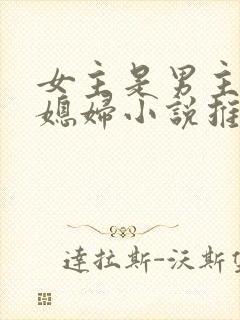 女主是男主
媳婦小說推
達拉斯-沃斯堡